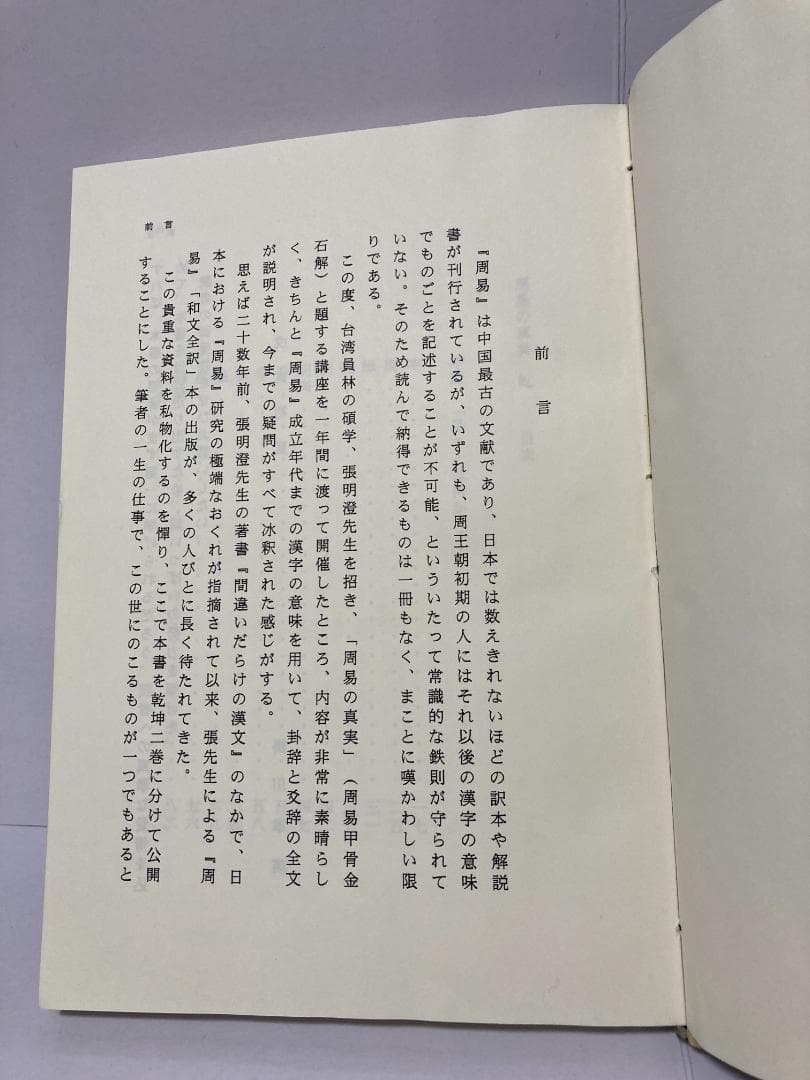 前言
『周易』は中国最古の文献であり、日本では数えきれないほどの訳本や解説
書が刊行されているが、いずれも、周王朝初期の人にはそれ以後の漢字の意味
でものごとを記述することが不可能、といういたって常識的な鉄則が守られて
いない。そのため読んで納得できるものは一冊もなく、まことに嘆かわしい限
りである。
この度、台湾員林の碩学、張明澄先生を招き、「周易の真実」（周易甲骨金
石解）と題する講座を一年間に渡って開催したところ、内容が非常に素晴らし
く、きちんと『周易』成立年代までの漢字の意味を用いて、卦辞と爻辞の全文
が説明され、今までの疑問がすべて冰釈された感じがする。
思えば二十数年前、張明澄先生の著書『間違いだらけの漢文』のなかで、日
本における『周易』研究の極端なおくれが指摘されて以来、張先生による『周
易』「和文全訳」本の出版が、多くの人びとに長く待たれてきた。
この貴重な資料を私物化するのを憚り、ここで本書を乾坤二巻に分けて公開
することにした。筆者の一生の仕事で、この世にのこるものが一つでもあると
前言